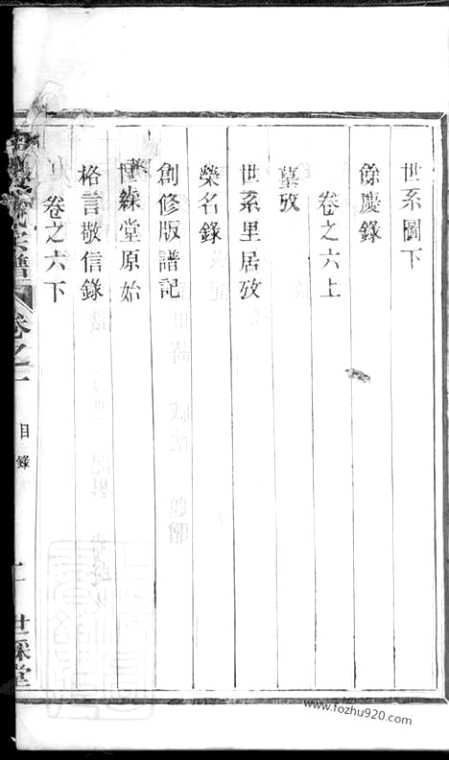 世系圖下
餘慶錄
卷之六上
墓攷
世系里居攷
榮名錄
創修版譜記
森堂原始
格言敬信錄
卷之六下
宗譜
卷之一
目錄
二
世綵堂
www.fozhu920.com